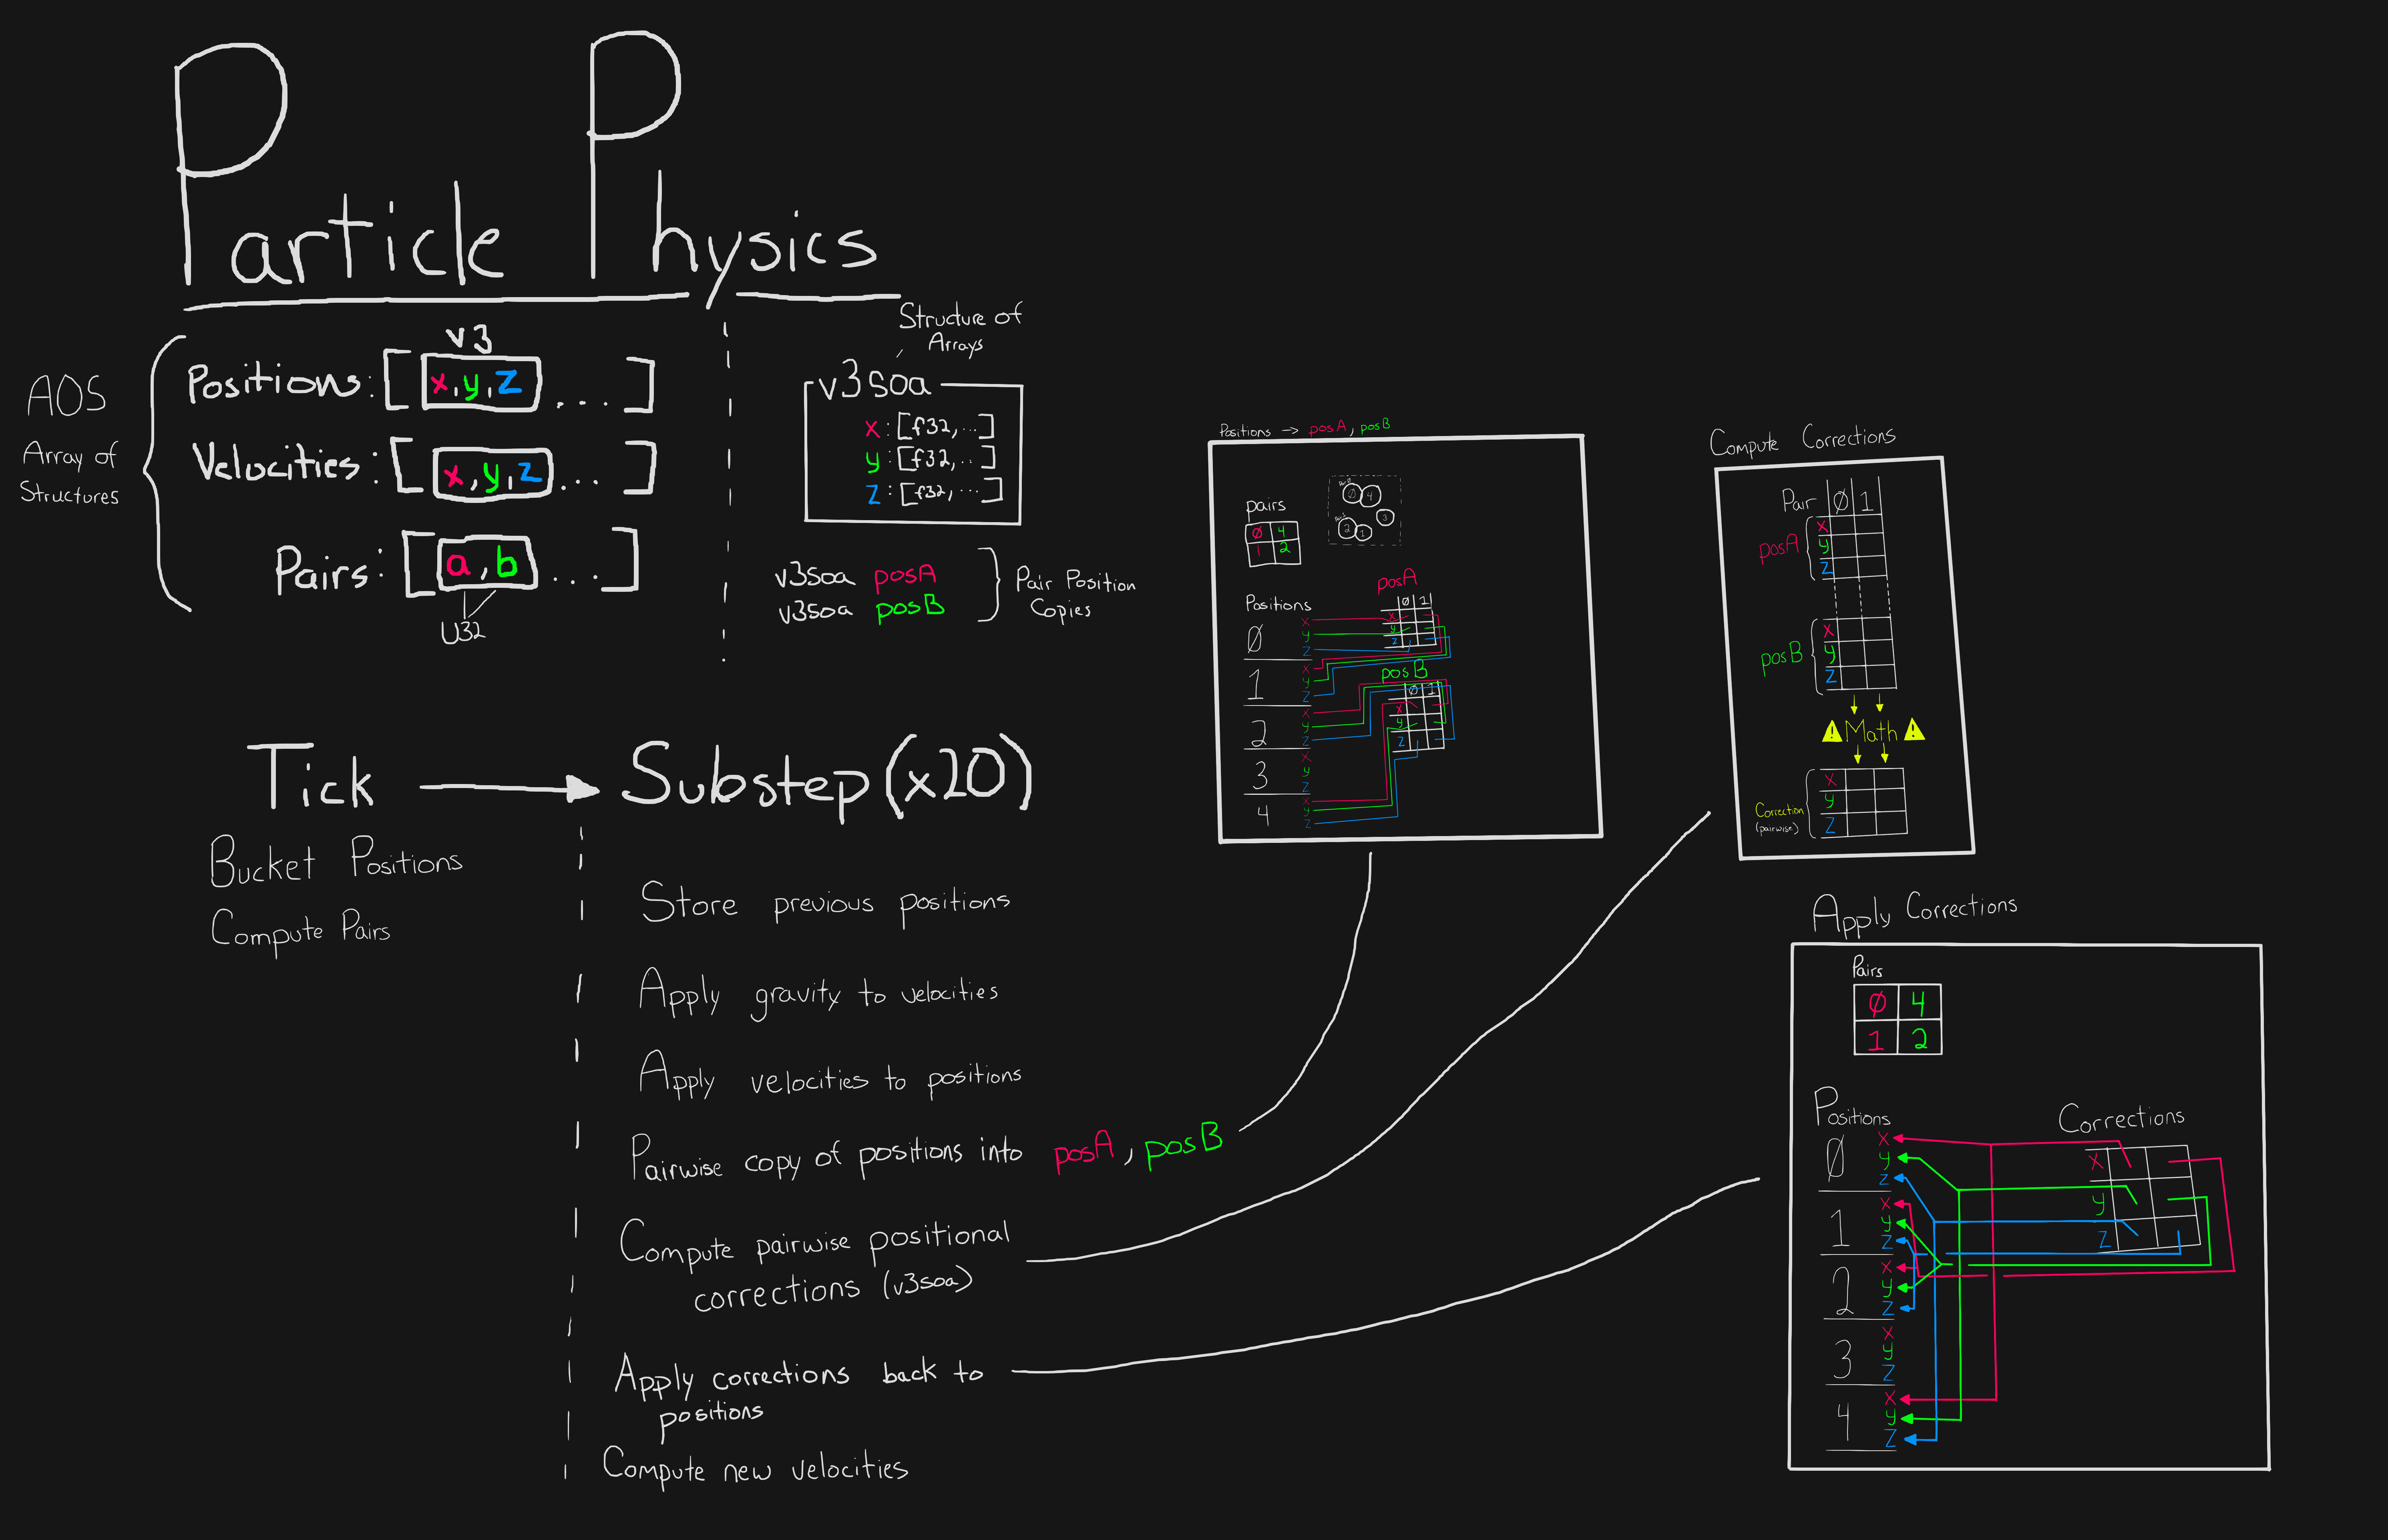 Particle Physics
AOS
Array of
Structures
v3
Positions: [x, y, z ...]
Velocities: [x, y, z ...]
Pairs: [a, b ...]
U32
Structure of
Arrays
v3soa
x: [f32, ...]
y: [f32, ...]
z: [f32, ...]
v3soa posA
v3soa posB
Pair Position
Copies
Tick → Substep (x20)
Bucket Positions
Compute Pairs
Store previous positions
Apply gravity to velocities
Apply velocities to positions
Pairwise copy of positions into posA, posB
Compute pairwise positional
corrections (v3soa)
Apply corrections back to
positions
Compute new velocities
Positions -> posA, posB
pairs
0 4
1 2
0 4
3
2 1
Positions
0 x y z
1 x y z
2 x y z
3 x y z
4 x y z
posA
0 1
x
y
z
posB
0 1
x
y
z
Compute Corrections
Pair 0 1
posA
x
y
z
posB
x
y
z
Math
Correction
(pairwise)
x
y
z
Apply Corrections
Pairs
0 4
1 2
Positions
0 x y z
1 x y z
2 x y z
3 x y z
4 x y z
Corrections
x
y
z